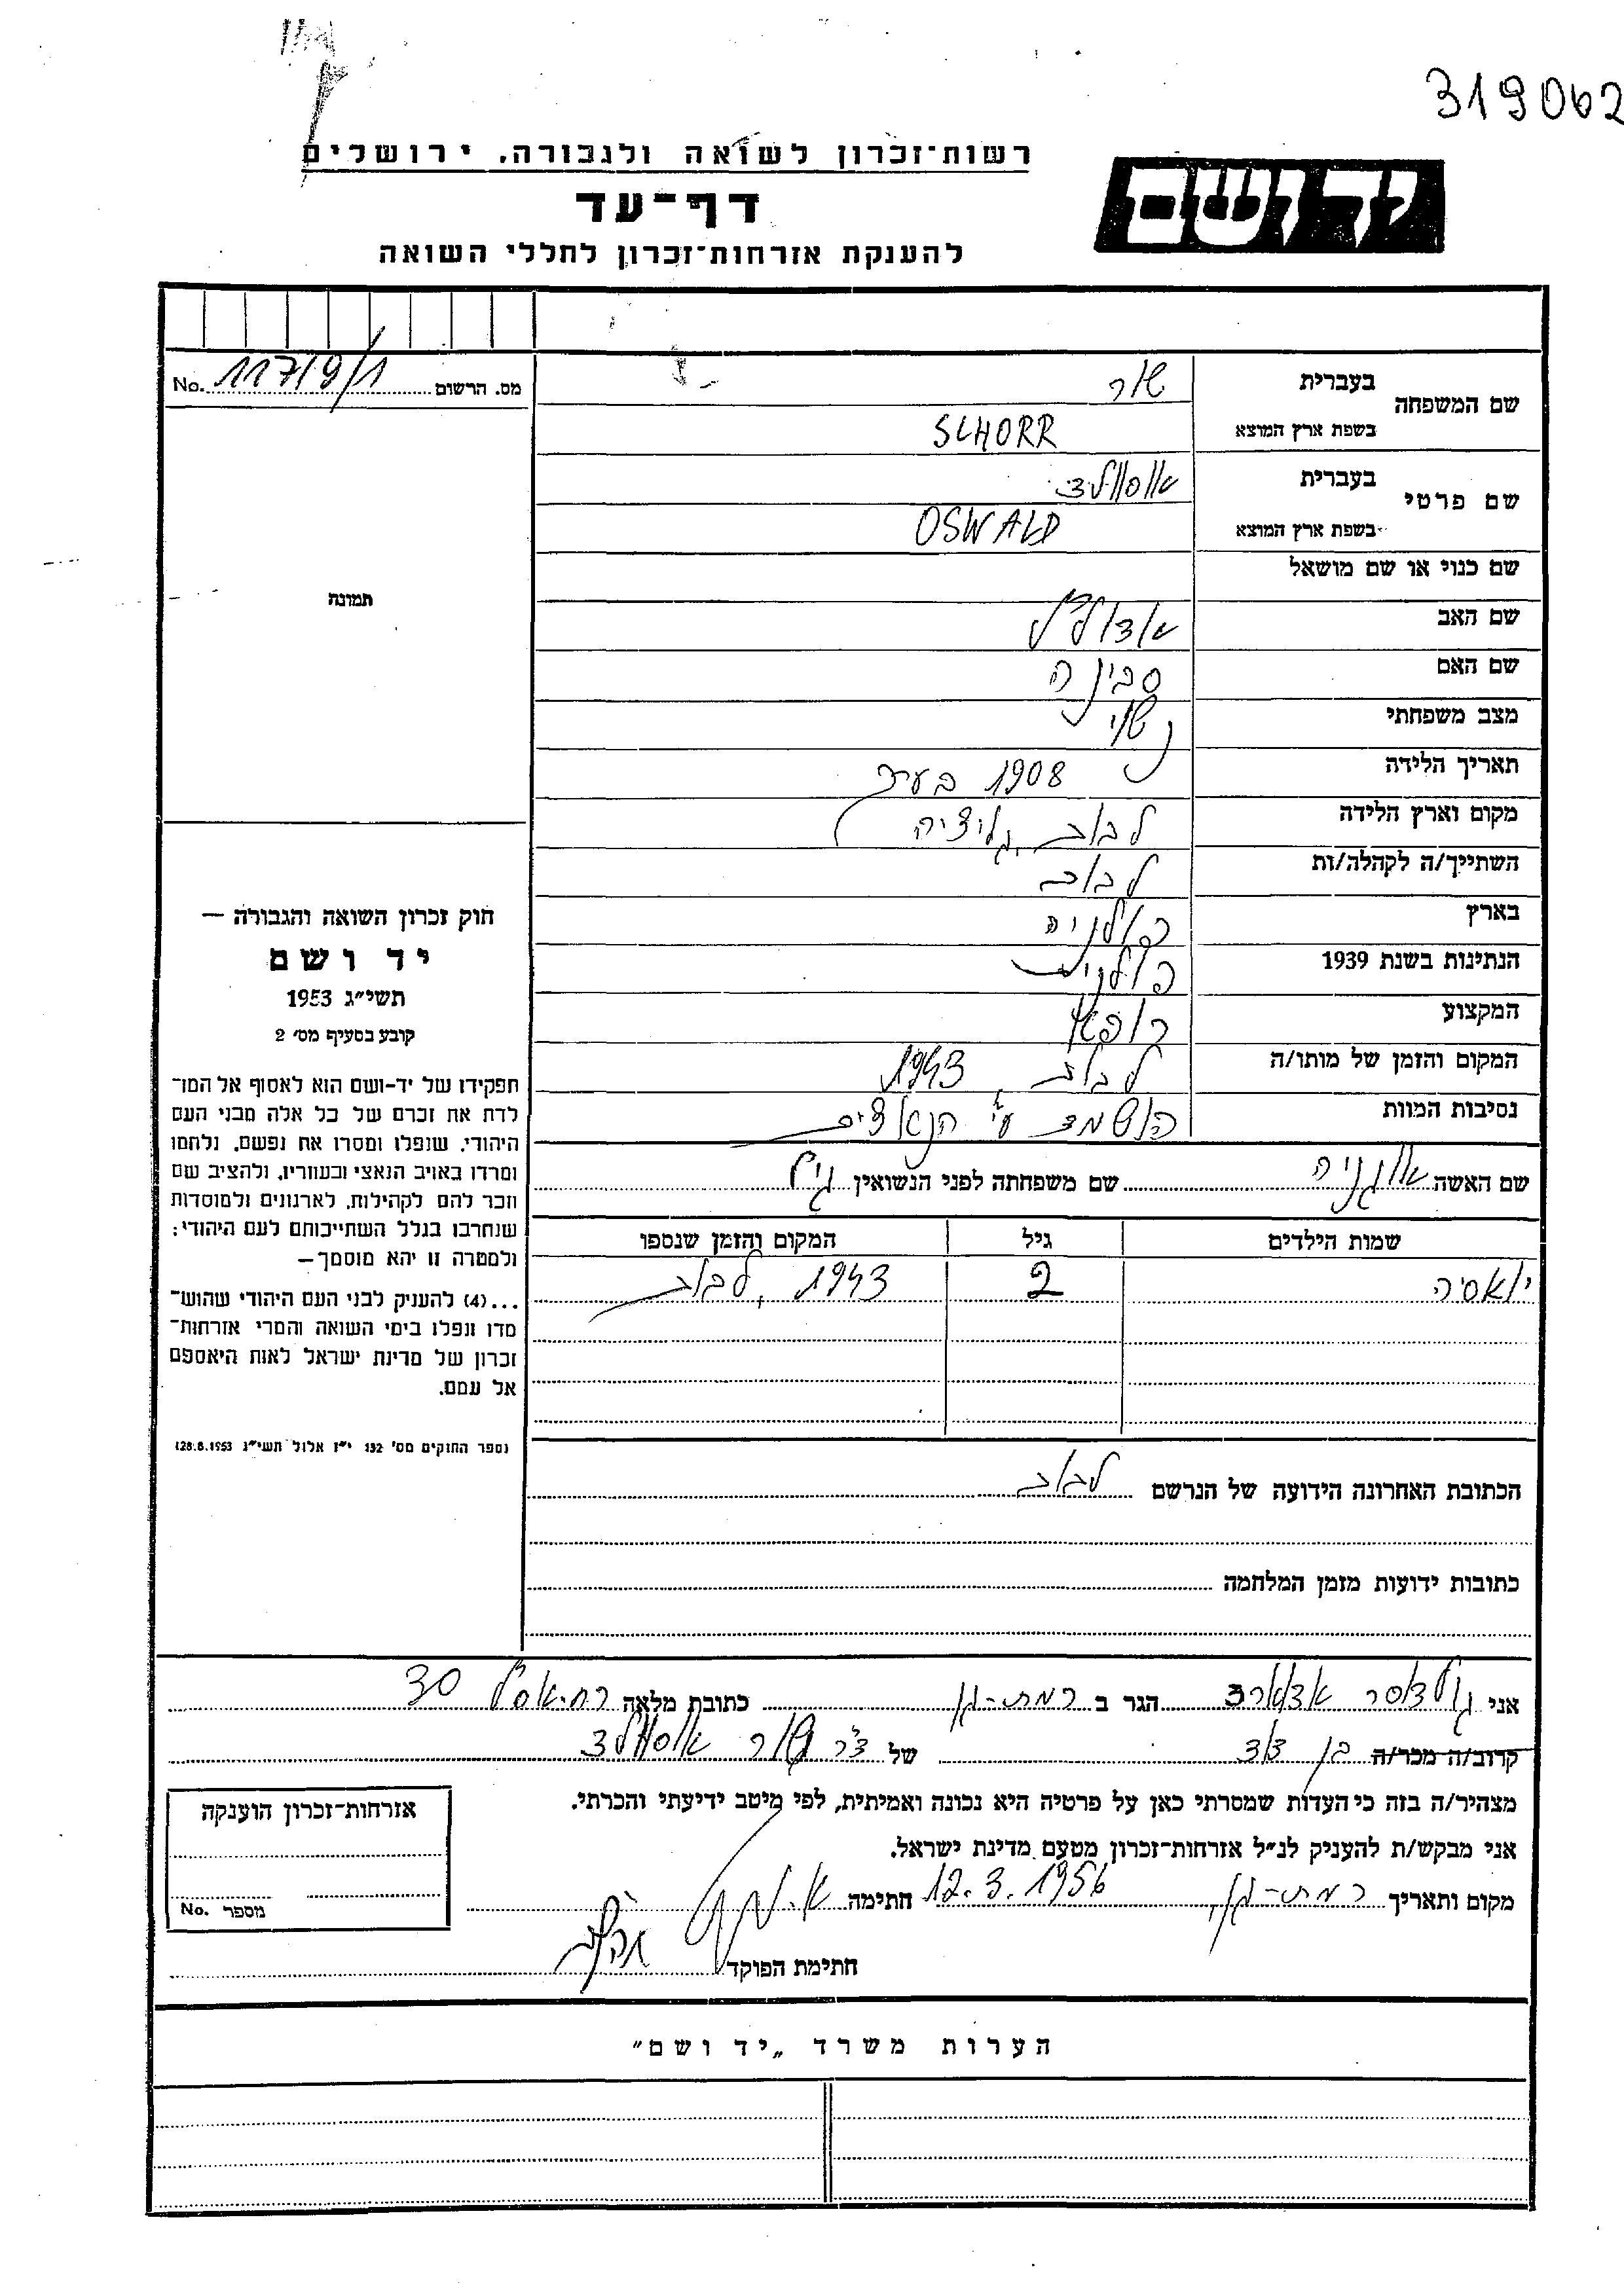 319062
יד ושם
רשות-זכרון לשואה ולגבורה, ירושלים
דף-עד
להענקת אזרחות-זכרון לחללי השואה
מס. הרשום 11719/1 No.
שם המשפחה
בעברית שור
בשפת ארץ המוצא SCHORR
שם פרטי
בעברית אוסוולד
בשפת ארץ המוצא OSWALD
שם כנוי או שם מושאל
שם האב אדולף
שם האם סבינה
מצב משפחתי נשוי
תאריך הלידה 1908 בערך
מקום וארץ הלידה לבוב, גליציה
השתייך/ה לקהלה/ות לבוב
בארץ פולניה
הנתינות בשנת 1939 פולנית
המקצוע רופא
המקום והזמן של מותו/ה לבוב, 1943
נסיבות המוות הושמד ע״י הנאצים
שם האשה אוגניה שם משפחתה לפני הנשואין
שמות הילדים גיל המקום והזמן שנספו
יואסיה 2 1943, לבוב
הכתובת האחרונה הידועה של הנרשם לבוב
כתובות ידועות מזמן המלחמה
תמונה
חוק זכרון השואה והגבורה —
יד ושם
תשי״ג 1953
קובע בסעיף מס׳ 2
תפקידו של יד-ושם הוא לאסוף אל המו־
לדת את זכרם של כל אלה מבני העם
היהודי, שנפלו ומסרו את נפשם, נלחמו
ומרדו באויב הנאצי ובעוזריו, ולהציב שם
וזכר להם לקהילות, לארגונים ולמוסדות
שנחרבו בגלל השתייכותם לעם היהודי;
ולמטרה זו יהא מוסמך—
...(4) להעניק לבני העם היהודי שהוש־
מדו ונפלו בימי השואה והמרי אזרחות־
זכרון של מדינת ישראל לאות היאספם
אל עמם.
(ספר החוקים מס׳ 132 י״ז אלול תשי״ג 28.8.1953)
אני אדוארד הגר ב רמת-גן כתובת מלאה 30
קרוב/ה מכר/ה בן דוד של ד״ר שור אוסוולד
מצהיר/ה בזה כי העדות שמסרתי כאן על פרטיה היא נכונה ואמיתית, לפי מיטב ידיעתי והכרתי.
אני מבקש/ת להעניק לנ״ל אזרחות-זכרון מטעם מדינת ישראל.
מקום ותאריך רמת-גן, 12.3.1956 חתימה
חתימת הפוקד
אזרחות-זכרון הוענקה
מספר No.
הערות משרד „יד ושם״